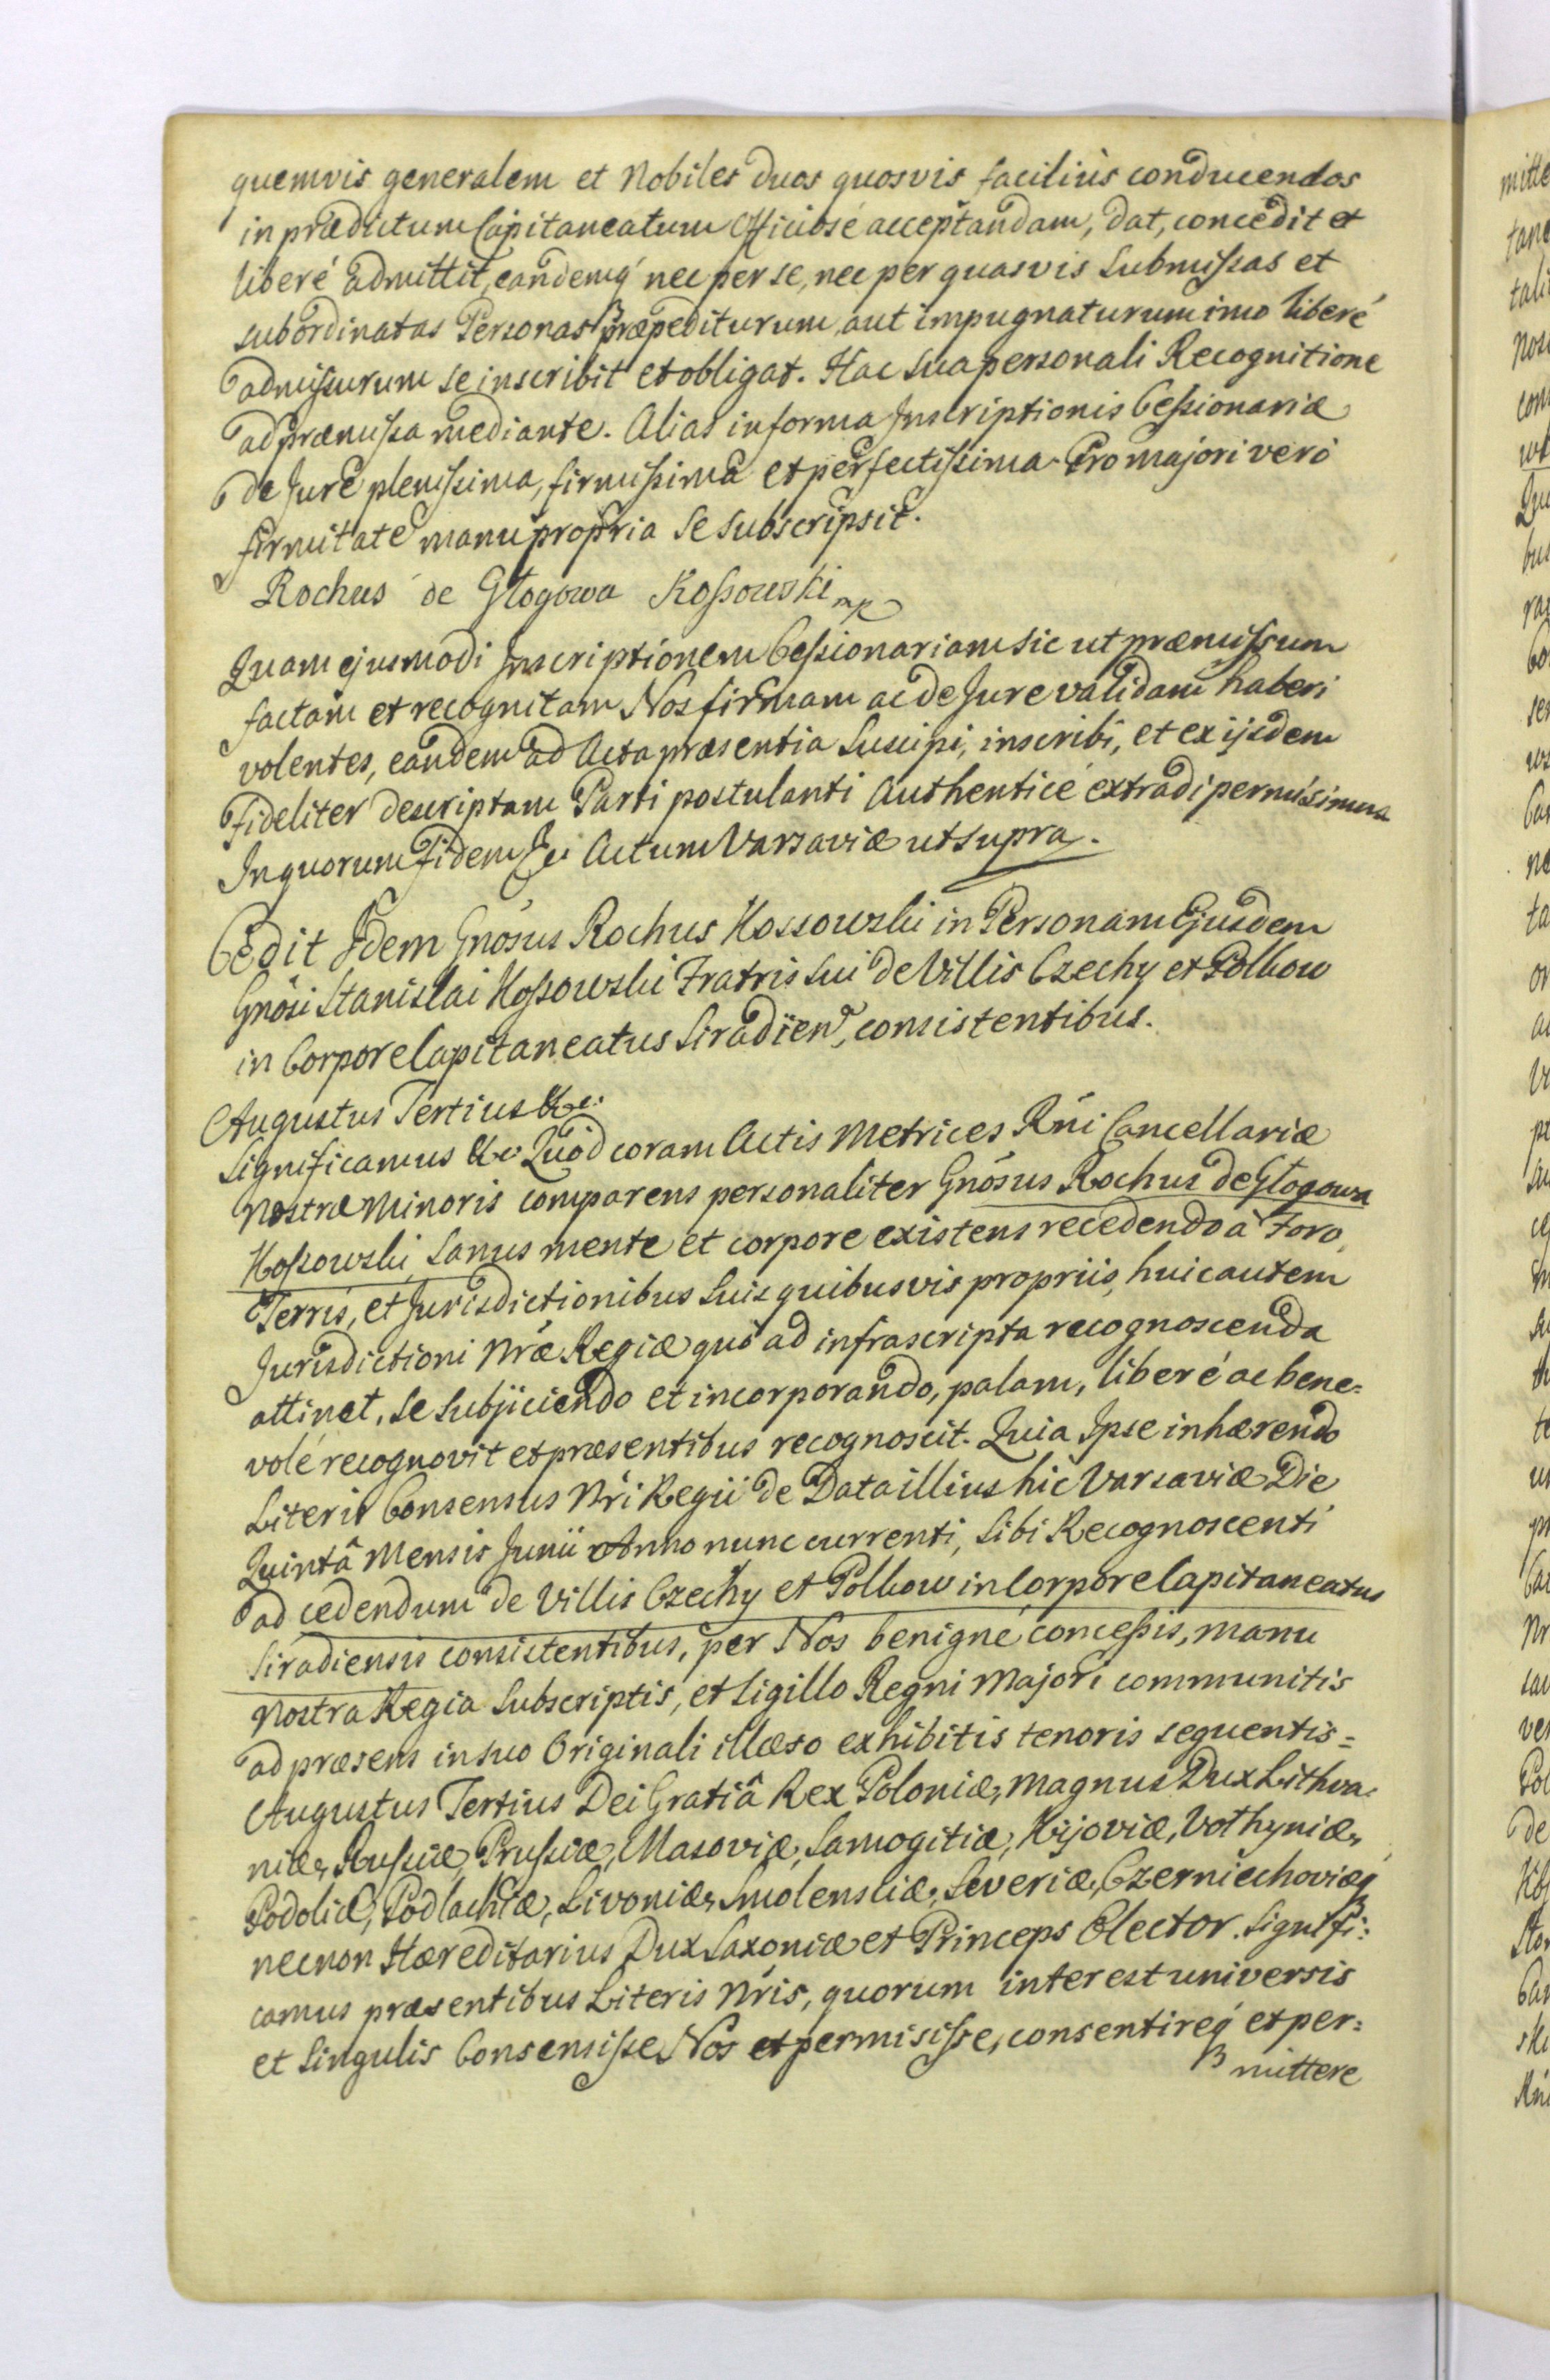 quemvis generalem et Nobiles duos quosvis faciliùs conducendos
in prædictum Capitaneatum Officiosé acceptandam, dat, concedit et
liberé admittit, eandemq́ nec per se, nec per quasvis Submissas et
subordinatas Personas præpediturum aut impugnaturum imo liberé
admissurum se inscribit et obligat. Hac sua personali Recognitione
ad præmissa mediante. Alias in forma Inscriptionis Cessionariæ
de Jure plenissima, firmissima et perfectissima. Pro majori veró
firmitate manu propria se subscripsit.
Rochus de Głogowa Kossowski mp
Quam ejusmodi Inscriptionem Cessionariam sic ut præmissum
factam et recognitam Nos firmam ac de Jure validam haberi
volentes, eandem ad Acta præsentia Suscipi, inscribi, et ex ijsdem
fideliter descriptam Parti postulanti Authenticé extradi permisimus
In quorum Fidem &c: Actum Varsaviæ ut supra.
Cedit Idem Gnösus Rochus Kossowski in Personam Ejusdem
Gnösi Stanislai Kossowski Fratris sui de Villis Czechy et Polkow
in Corpore Capitaneatus Siradien, consistentibus.
Augustus Tertius &c:
Significamus &c: Quod coram Actis Metrices Rńi Cancellariæ
Nostræ Minoris comparens personaliter Gnösus Rochus de Głogowa
Kossowski, sanus mente et corpore existens recedendo à Foro,
Terris, et Jurisdictionibus suis quibusvis propriis, huic autem
Jurisdictioni Nræ Regiæ quó ad infrascripta recognoscenda
attinet, se subjiciendo et incorporando, palam, liberé ac bene=
volé recognovit et præsentibus recognoscit. Quia Ipse inhærendo
Literis Consensus Nri Regii de Data illius hic Varsaviæ Die
Quintâ Mensis Junii Anno nunc currenti, sibi Recognoscenti
ad cedendum de Villis Czechy et Polkow in Corpore Capitaneatus
Siradiensis consistentibus, per Nos benigné concessis, manu
Nostra Regia Subscriptis, et Sigillo Regni Majori communitis
ad præsens in suo Originali illæso exhibitis tenoris sequentis=
Augustus Tertius Dei Gratiâ Rex Poloniæ, Magnus Dux Lithva=
niæ, Russiæ, Prussiæ, Masoviæ, Samogitiæ, Kijoviæ, Volhyniæ,
Podoliæ, Podlachiæ, Livoniæ, Smolensciæ, Severiæ, Czerniechoviæq́
necnon Hæreditarius Dux Saxoniæ et Princeps Elector. Signifi=
camus præsentibus Literis Nris, quorum interest universis
et singulis Consensisse Nos et permisisse, consentireq́ et per=
mittere